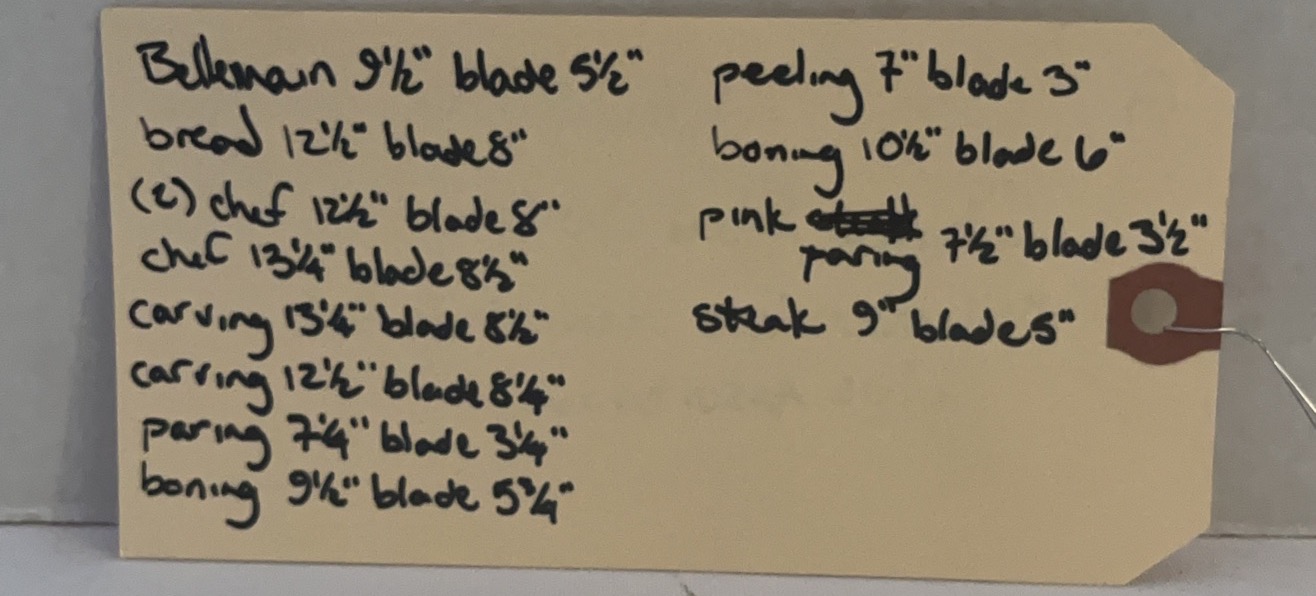 Bellemain 9½" blade 5½"
bread 12½" blade 8"
(2) chef 12½" blade 8"
chef 13¼" blade 8½"
carving 13¼" blade 8½"
carving 12½" blade 8¼"
paring 7¼" blade 3¼"
boning 9½" blade 5¾"
peeling 7" blade 3"
boning 10½" blade 6"
pink paring 7½" blade 3½"
steak 9" blade 5"